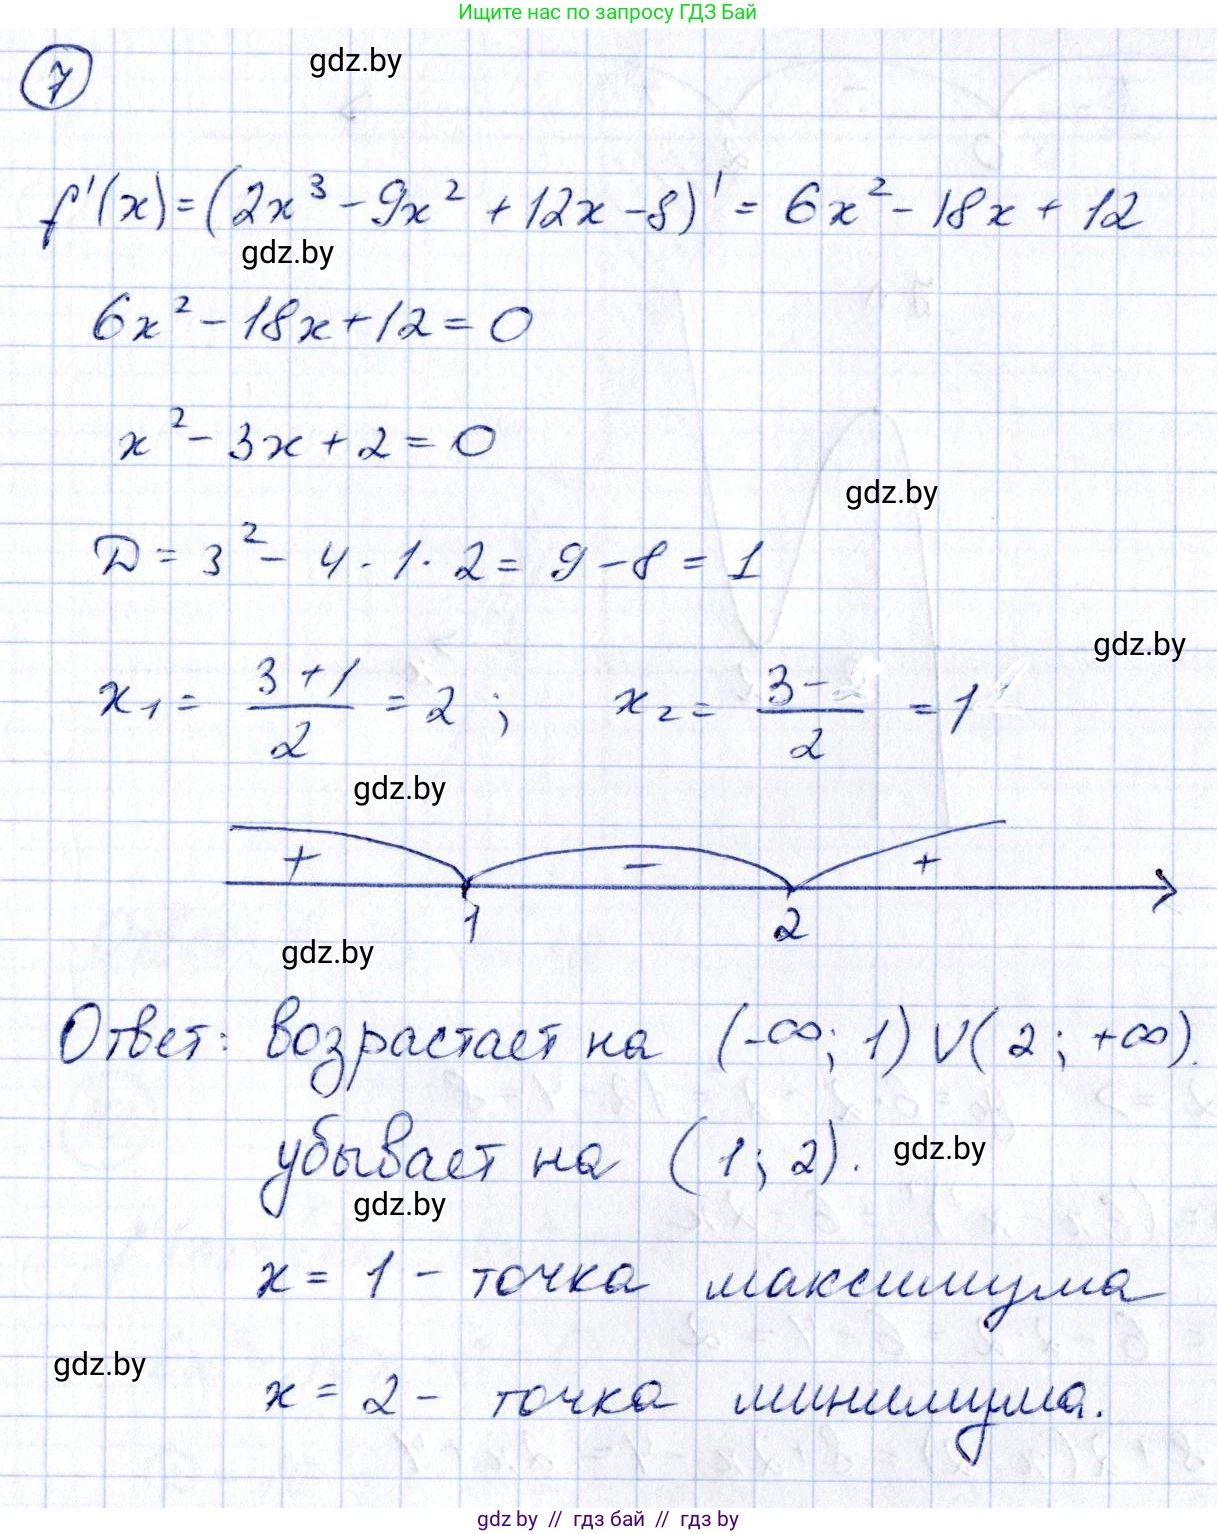 Ищите нас по запросу ГДЗ Бай
7
gdz.by
f'(x) = (2x³ - 9x² + 12x - 8)' = 6x² - 18x + 12
gdz.by
6x² - 18x + 12 = 0
x² - 3x + 2 = 0
gdz.by
D = 3² - 4 · 1 · 2 = 9 - 8 = 1
gdz.by
x₁ = (3 + 1)/2 = 2 ; x₂ = (3 - )/2 = 1
gdz.by
+ - +
1 2
gdz.by
Ответ: возрастает на (-∞; 1) ∪ (2; +∞).
убывает на (1; 2). gdz.by
gdz.by
x = 1 - точка максимума
gdz.by
x = 2 - точка минимума.
gdz.by // гдз бай // гдз by